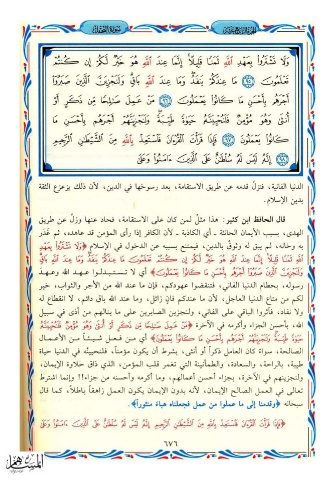 سورة النحل
وَلَا تَشْتَرُوا۟ بِعَهْدِ ٱللَّهِ ثَمَنًا قَلِيلًا إِنَّمَا عِندَ ٱللَّهِ هُوَ خَيْرٌ لَّكُمْ إِن كُنتُمْ
تَعْلَمُونَ ٩٥ مَا عِندَكُمْ يَنفَدُ وَمَا عِندَ ٱللَّهِ بَاقٍ وَلَنَجْزِيَنَّ ٱلَّذِينَ صَبَرُوٓا۟
أَجْرَهُم بِأَحْسَنِ مَا كَانُوا۟ يَعْمَلُونَ ٩٦ مَنْ عَمِلَ صَٰلِحًا مِّن ذَكَرٍ أَوْ
أُنثَىٰ وَهُوَ مُؤْمِنٌ فَلَنُحْيِيَنَّهُۥ حَيَوٰةً طَيِّبَةً وَلَنَجْزِيَنَّهُمْ أَجْرَهُم بِأَحْسَنِ مَا
كَانُوا۟ يَعْمَلُونَ ٩٧ فَإِذَا قَرَأْتَ ٱلْقُرْءَانَ فَٱسْتَعِذْ بِٱللَّهِ مِنَ ٱلشَّيْطَٰنِ ٱلرَّجِيمِ
٩٨ إِنَّهُۥ لَيْسَ لَهُۥ سُلْطَٰنٌ عَلَى ٱلَّذِينَ ءَامَنُوا۟ وَعَلَىٰ
الدنيا الفانية، فتزلّ قدمه عن طريق الاستقامة، بعد رسوخها في الدين، لأن ذلك يزعزع الثقة
بدين الإسلام.
قال الحافظ ابن كثير: هذا مثلٌ لمن كان على الاستقامة، فحاد عنها وزلّ عن طريق
الهدى، بسبب الأيمان الحانثة ـ أي الكاذبة ـ لأن الكافر إذا رأى المؤمن قد عاهده، ثم غَدَر
به وخانه، لم يبق له وثوقٌ بالدين، فيمتنع بسببه عن الدخول في الإسلام ﴿وَلَا تَشْتَرُوا بِعَهْدِ
اللَّهِ ثَمَنًا قَلِيلًا إِنَّمَا عِندَ اللَّهِ هُوَ خَيْرٌ لَّكُمْ إِن كُنتُمْ تَعْلَمُونَ مَا عِندَكُمْ يَنفَدُ وَمَا عِندَ اللَّهِ بَاقٍ
وَلَنَجْزِيَنَّ الَّذِينَ صَبَرُوا أَجْرَهُم بِأَحْسَنِ مَا كَانُوا يَعْمَلُونَ﴾ أي لا تستبدلوا عهد الله وعهد
رسوله، بحطام الدنيا الفاني، فتنقضوا عهودكم، فإن ما عند الله من الأجر والثواب، خير
لكم من متاع الدنيا العاجل، لأن ما عندكم فانٍ زائل، وما عند الله باق دائم، لا انقطاع له
ولا نفاد، فآثروا الباقي على الفاني، ولنجزين الصابرين على ما ينالهم من أذى في سبيل
الله، بأحسن الجزاء وأكرمه في الآخرة ﴿مَنْ عَمِلَ صَالِحًا مِّن ذَكَرٍ أَوْ أُنثَى وَهُوَ مُؤْمِنٌ فَلَنُحْيِيَنَّهُ
حَيَاةً طَيِّبَةً وَلَنَجْزِيَنَّهُمْ أَجْرَهُم بِأَحْسَنِ مَا كَانُوا يَعْمَلُونَ﴾ أي من فعل شيئاً من الأعمال
الصالحة، سواء كان العامل ذكراً أو أنثى، بشرط أن يكون مؤمناً، فلنحيينَّه في الدنيا حياة
طيبة، بالراحة، والسعادة، والطمأنينة التي تغمر قلب المؤمن، الذي ذاق حلاوة الإيمان،
ولنجزينهم في الآخرة، بجزاء أحسن أعمالهم، وما أكرمه وأحسنه من جزاء!! وإنما اشترط
تعالى في العمل الصالح الإيمان، لأنه بدون الإيمان يكون العمل زاهقاً باطلاً، كما قال
سبحانه ﴿وقدمنا إلى ما عملوا من عمل فجعلناه هباءً منثوراً﴾.
﴿فَإِذَا قَرَأْتَ الْقُرْآنَ فَاسْتَعِذْ بِاللَّهِ مِنَ الشَّيْطَانِ الرَّجِيمِ إِنَّهُ لَيْسَ لَهُ سُلْطَانٌ عَلَى الَّذِينَ آمَنُوا وَعَلَى
٦٧٦